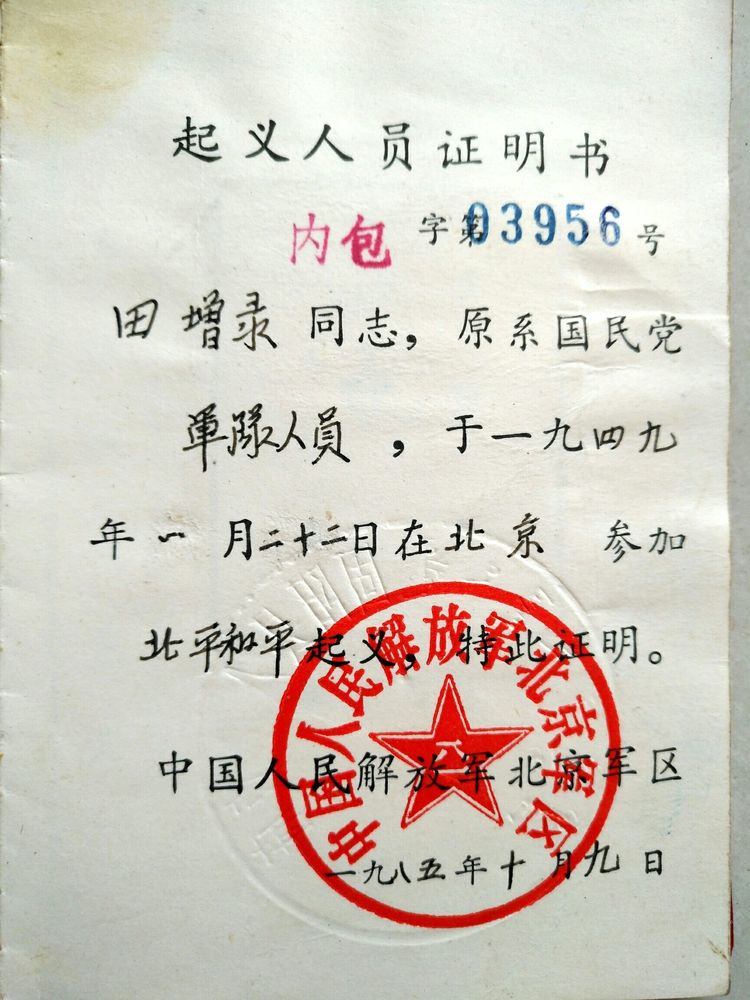 起义人员证明书
内包 字第03956号
田增录 同志，原系国民党
軍隊人员，于一九四九
年一月二十二日在北京 参加
北平和平起义，特此证明。
中国人民解放军北京军区
一九八五年十月九日
中国人民解放军北京军区
八一